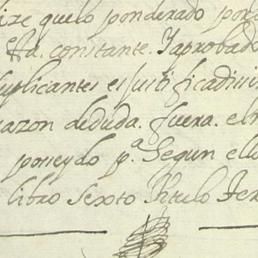 ize quelo ponderado por
esta. constante. Iaprobad
uplicantes es justificadissi
razon deduda. fuera. el n
poseydo p.ª Segun ello
libro Sexto titulo Ter